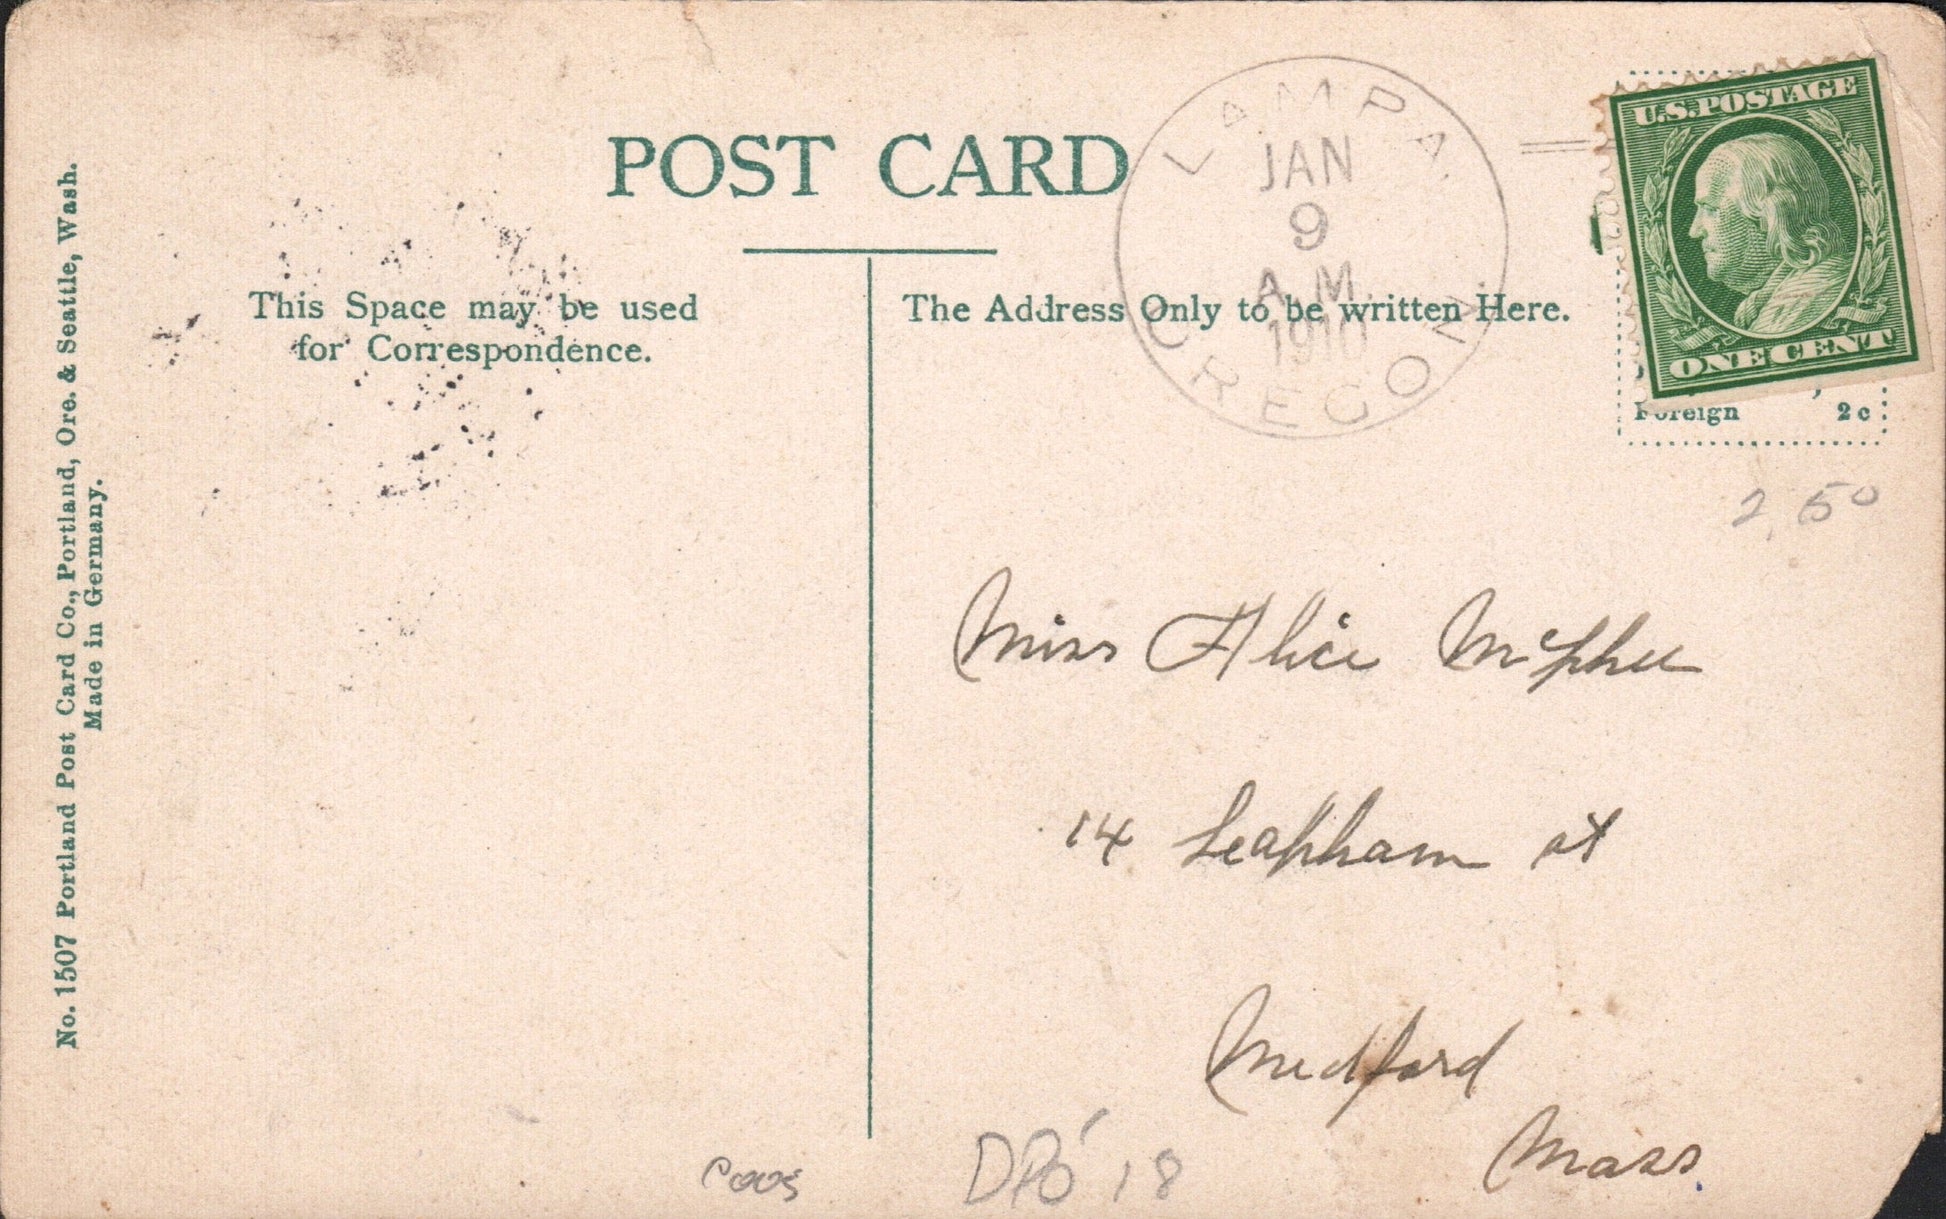 POST CARD
This Space may be used
for Correspondence.
The Address Only to be written Here.
LAMPA.
JAN
9
A.M
1910
OREGON
U.S. POSTAGE
ONE CENT
Foreign 2c
2,50
Miss Alice McPhee
14 Leapham st
Medford
Mass.
Coos
DPO '18
No. 1507 Portland Post Card Co., Portland, Ore. & Seattle, Wash.
Made in Germany.